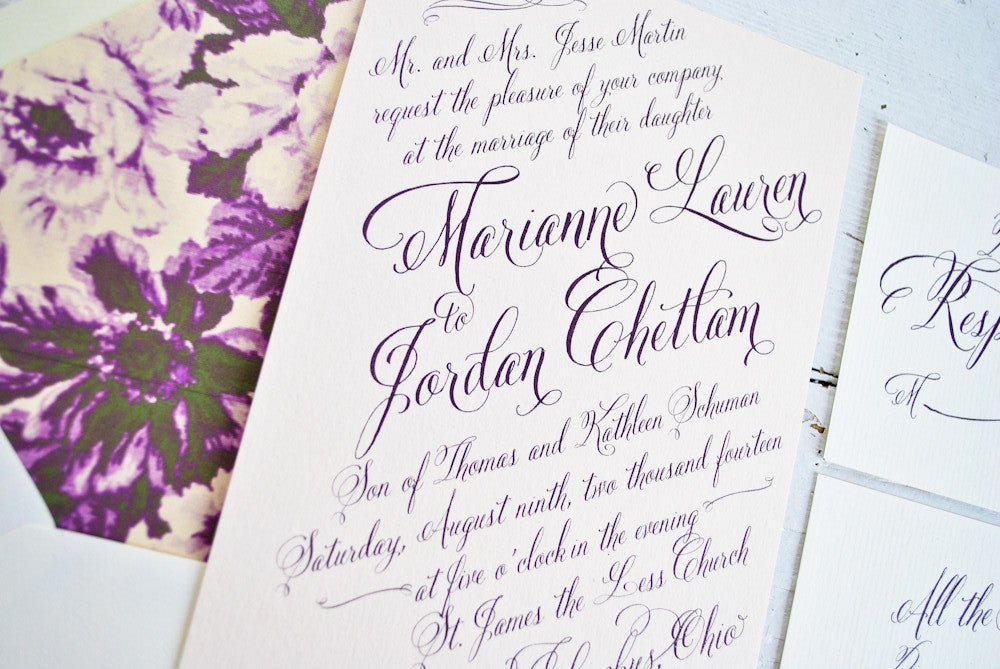 Mr. and Mrs. Jesse Martin
request the pleasure of your company
at the marriage of their daughter
Marianne Lauren
to
Jordan Chettam
Son of Thomas and Kathleen Schuman
Saturday, August ninth, two thousand fourteen
at five o'clock in the evening
St. James the Less Church
Ohio
Resp
M
All the